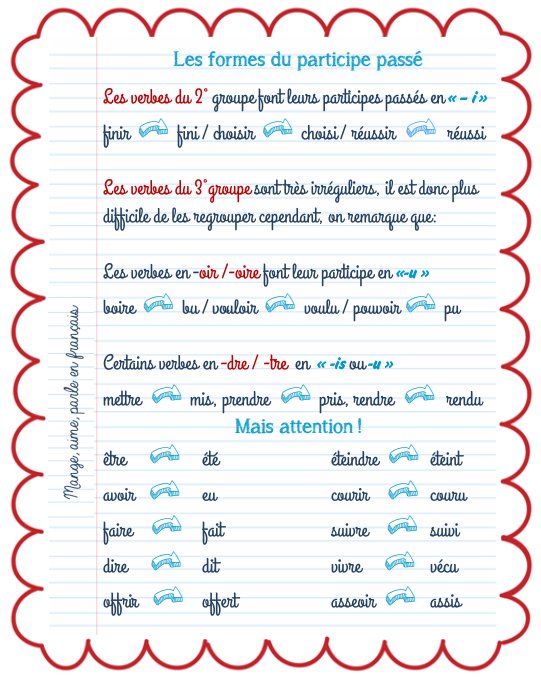 Les formes du participe passé
Les verbes du 2° groupe font leurs participes passés en « – i »
finir fini / choisir choisi / réussir réussi
Les verbes du 3° groupe sont très irréguliers, il est donc plus
difficile de les regrouper cependant, on remarque que:
Les verbes en -oir /-oire font leur participe en «-u »
boire bu / vouloir voulu / pouvoir pu
Certains verbes en -dre / -tre en « -is ou-u »
mettre mis, prendre pris, rendre rendu
Mais attention !
être été éteindre éteint
avoir eu courir couru
faire fait suivre suivi
dire dit vivre vécu
offrir offert asseoir assis
Mange, aime, parle en français